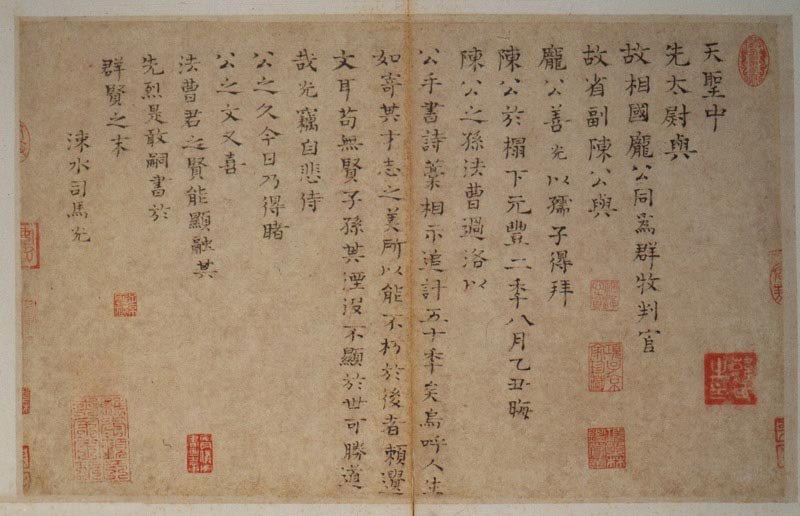 天聖中
先太尉與
故相國龐公同爲群牧判官
故省副陳公與
龐公善光以孺子得拜
陳公於榻下元豐二秊八月乙丑晦
陳公之孫法曹過洛以
公手書詩藁相示追計五十秊矣烏呼人生
如寄其才志之美所以能不朽於後者賴遺
文耳苟無賢子孫其湮没不顯於世可勝道
哉光竊自悲待
公之久今日乃得睹
公之文又喜
法曹君之賢能顯融其
先烈是敢嗣書於
群賢之末
涑水司馬光